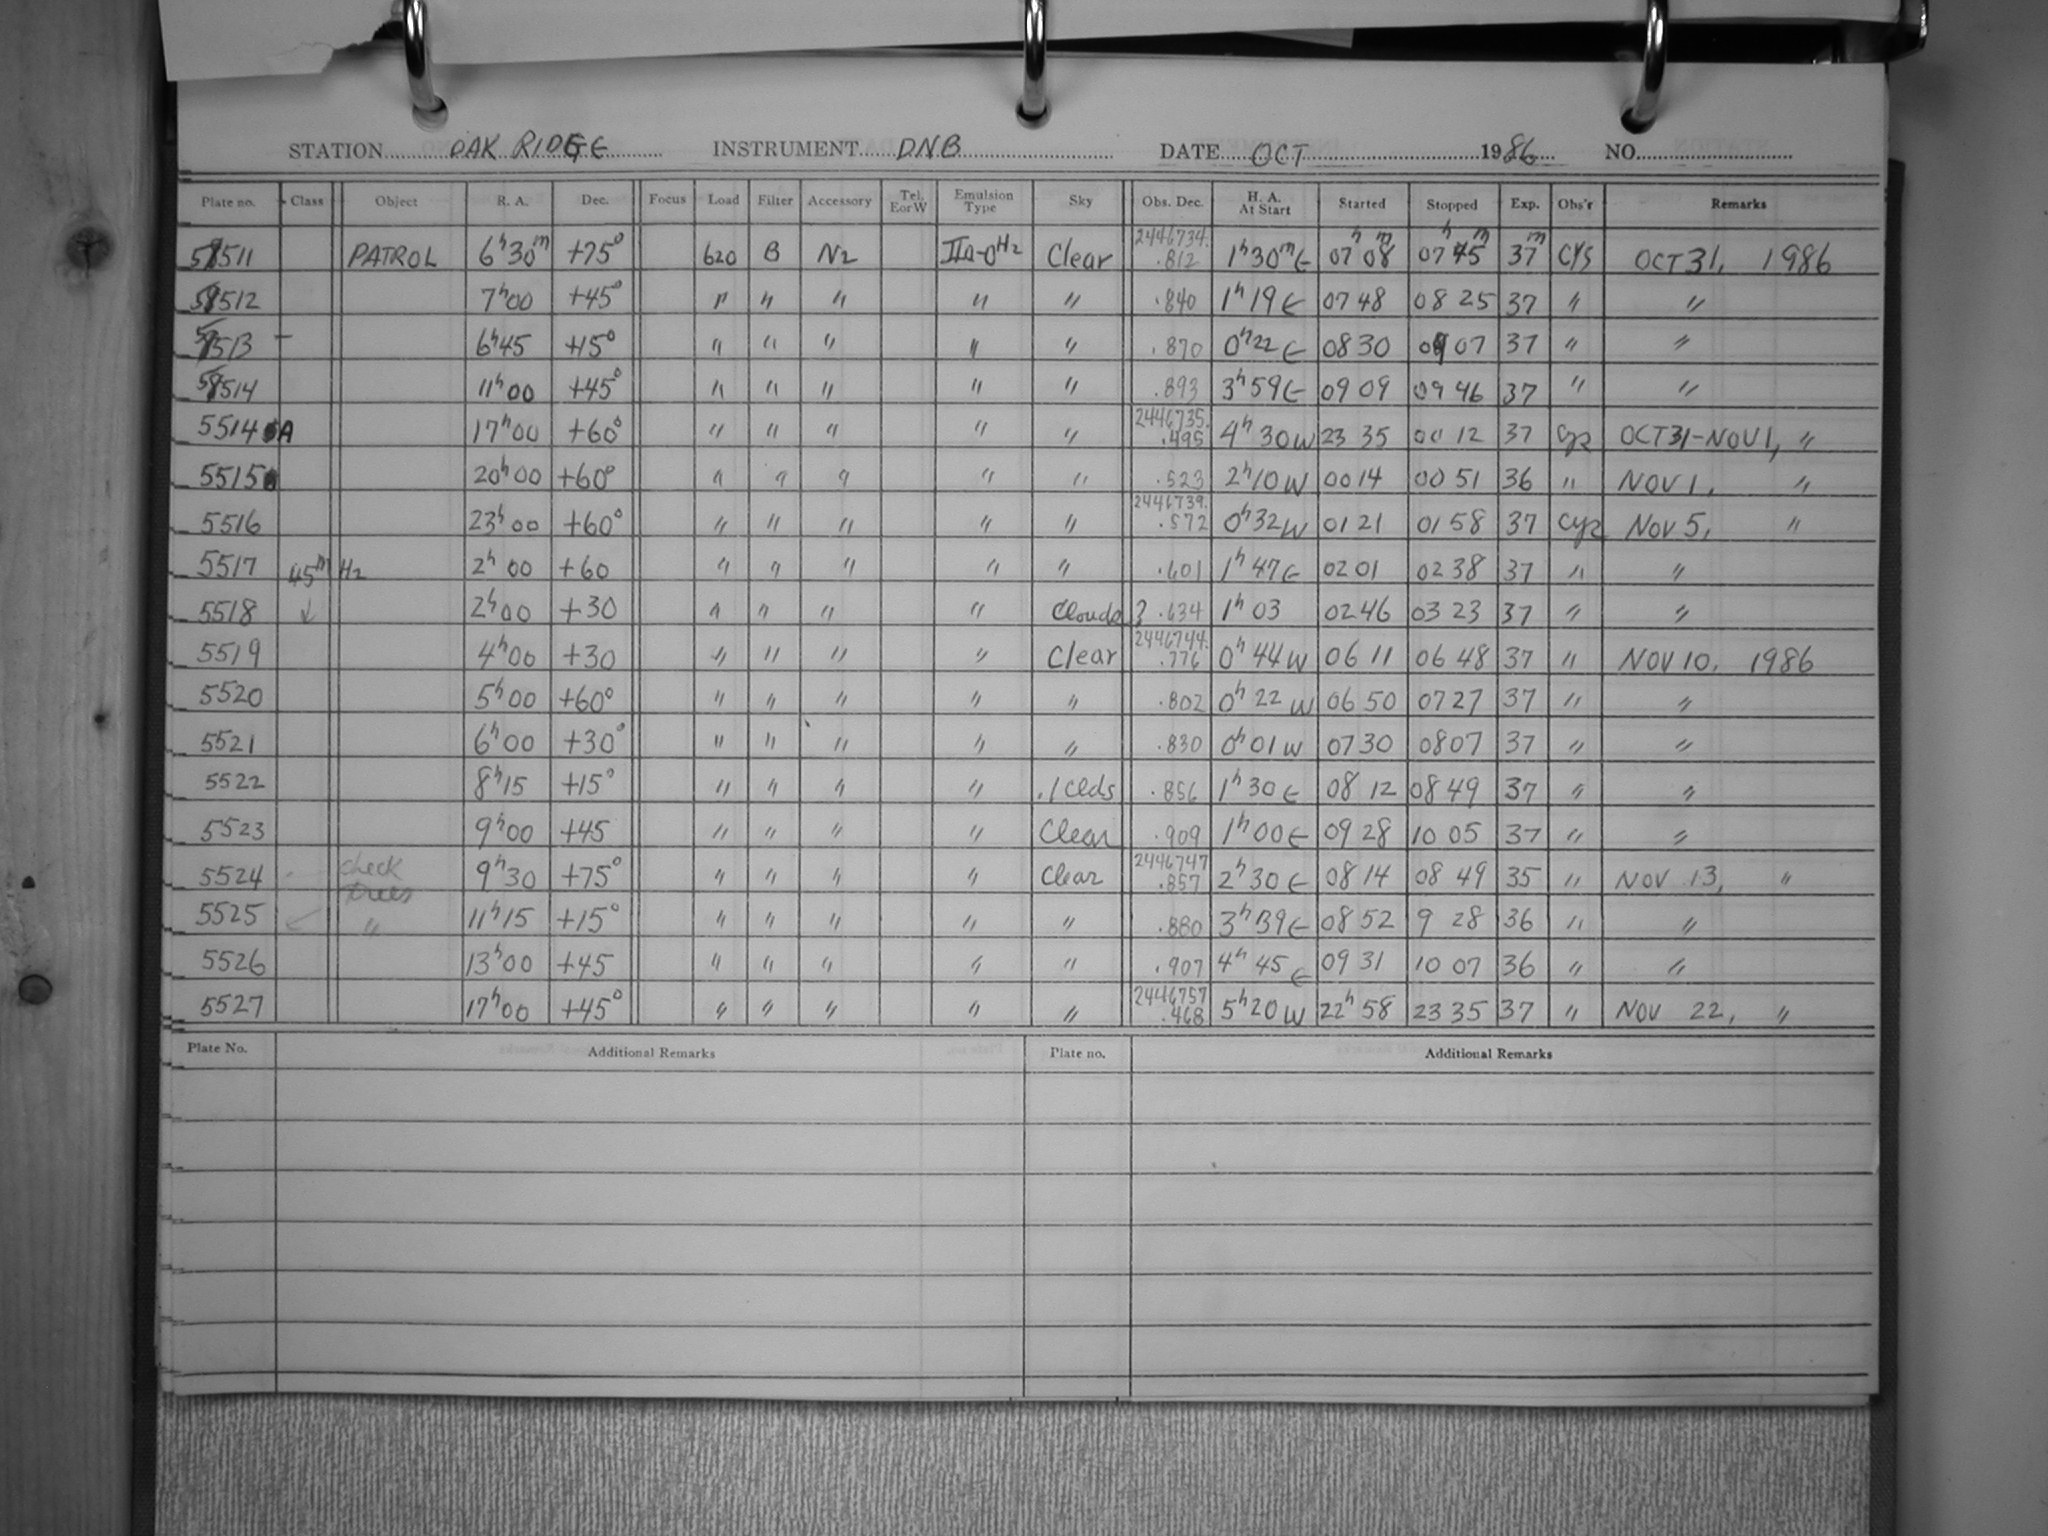 STATION OAK RIDGE INSTRUMENT DNB DATE OCT 1986 NO.
Plate no. Class Object R. A. Dec. Focus Load Filter Accessory Tel. E or W Emulsion Type Sky Obs. Dec. H. A. At Start Started Stopped Exp. Obs'r Remarks
5511 PATROL 6h30m +75° 620 B N2 IIa-O H2 Clear 2446734.812 1h30mE 07h08m 07h45m 37m CYS OCT 31, 1986
5512 7h00 +45° " " " " " .840 1h19E 0748 0825 37 " "
5513 6h45 +15° " " " " " .870 0h22E 0830 0907 37 " "
5514 11h00 +45° " " " " " .893 3h59E 0909 0946 37 " "
5514A 17h00 +60° " " " " " 2446735.495 4h30W 2335 0012 37 Cyr OCT31-NOV1, "
5515 20h00 +60° " " " " " .523 2h10W 0014 0051 36 " NOV 1, "
5516 23h00 +60° " " " " " 2446739.572 0h32W 0121 0158 37 Cyr NOV 5, "
5517 45m H2 2h00 +60 " " " " " .601 1h47E 0201 0238 37 " "
5518 ↓ 2h00 +30 " " " " Clouds? .634 1h03 0246 0323 37 " "
5519 4h00 +30 " " " " Clear 2446744.776 0h44W 0611 0648 37 " NOV 10, 1986
5520 5h00 +60° " " " " " .802 0h22W 0650 0727 37 " "
5521 6h00 +30° " " " " " .830 0h01W 0730 0807 37 " "
5522 8h15 +15° " " " " .1 Clds .856 1h30E 0812 0849 37 " "
5523 9h00 +45 " " " " Clear .909 1h00E 0928 1005 37 " "
5524 check trees 9h30 +75° " " " " Clear 2446747.857 2h30E 0814 0849 35 " NOV 13, "
5525 " 11h15 +15° " " " " " .880 3h39E 0852 928 36 " "
5526 13h00 +45 " " " " " .907 4h45E 0931 1007 36 " "
5527 17h00 +45° " " " " " 2446757.468 5h20W 22h58 2335 37 " NOV 22, "
Plate No. Additional Remarks Plate no. Additional Remarks